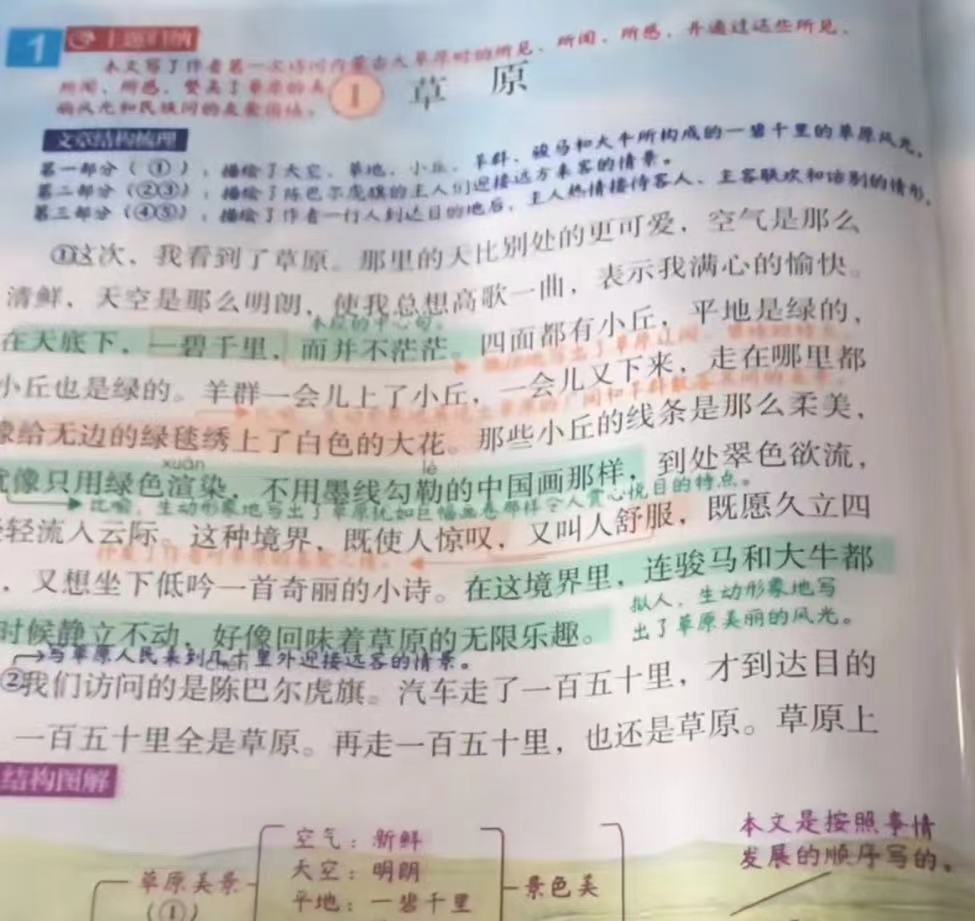 1 主题归纳
本文写了作者第一次访问内蒙古大草原时的所见、所闻、所感，并通过这些所见、
所闻、所感，赞美了草原的美
丽风光和民族间的友爱团结。
1 草原
文章结构梳理
第一部分（①）：描绘了天空、草地、小丘、羊群、骏马和大牛所构成的一碧千里的草原风光。
第二部分（②③）：描绘了陈巴尔虎旗的主人们迎接远方来客的情景。
第三部分（④⑤）：描绘了作者一行人到达目的地后，主人热情接待客人、主客联欢和话别的情形。
①这次，我看到了草原。那里的天比别处的更可爱，空气是那么
清鲜，天空是那么明朗，使我总想高歌一曲，表示我满心的愉快。
本段的中心句。
在天底下，一碧千里，而并不茫茫。四面都有小丘，平地是绿的，
写出了草原辽阔
小丘也是绿的。羊群一会儿上了小丘，一会儿又下来，走在哪里都
像给无边的绿毯绣上了白色的大花。那些小丘的线条是那么柔美，
xuàn lè
就像只用绿色渲染，不用墨线勾勒的中国画那样，到处翠色欲流，
比喻，生动形象地写出了草原犹如巨幅画卷那样令人赏心悦目的特点。
轻轻流入云际。这种境界，既使人惊叹，又叫人舒服，既愿久立四
，又想坐下低吟一首奇丽的小诗。在这境界里，连骏马和大牛都
拟人，生动形象地写
出了草原美丽的风光。
时候静立不动，好像回味着草原的无限乐趣。
写草原人民来到几十里外迎接远客的情景。
②我们访问的是陈巴尔虎旗。汽车走了一百五十里，才到达目的
一百五十里全是草原。再走一百五十里，也还是草原。草原上
结构图解
本文是按照事情
发展的顺序写的。
空气：新鲜
天空：明朗
草原美景
（①）
平地：一碧千里
景色美